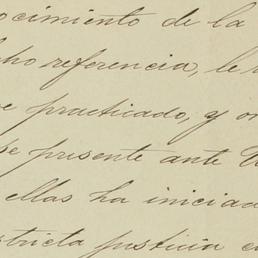 ocimiento de la
ho referencia, le
practicado, y
presente ante
ellas ha iniciad
stricta justicia